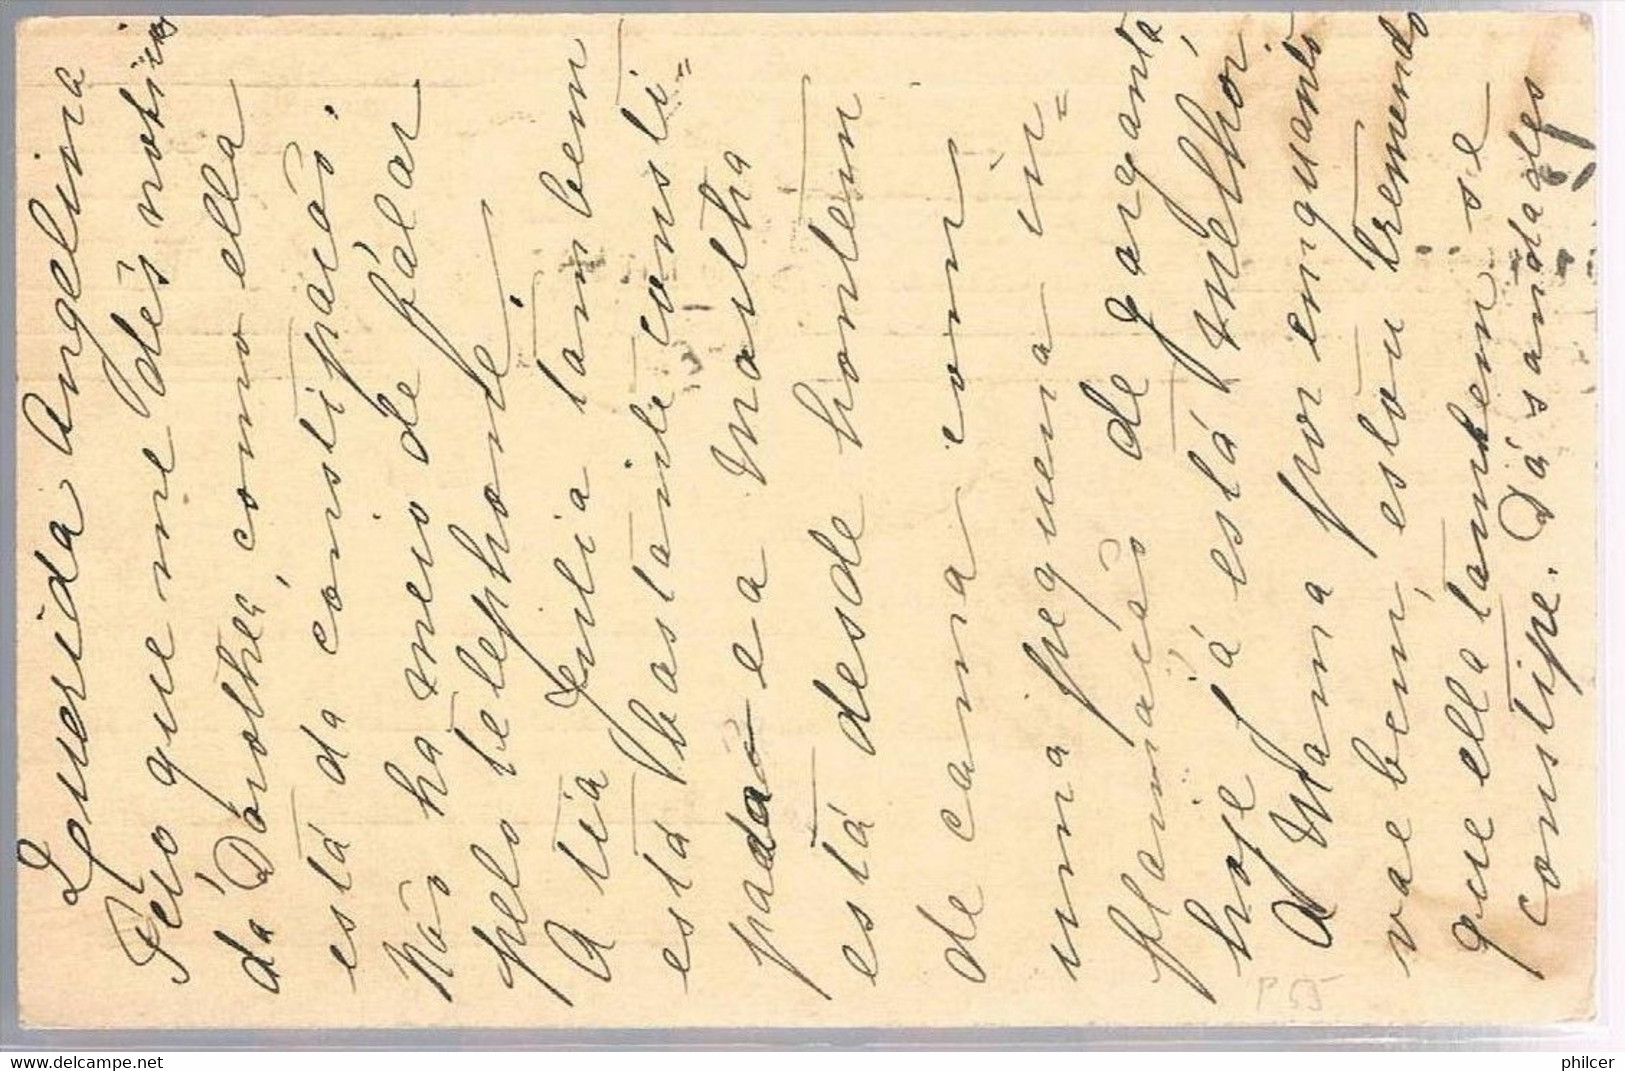 Querida Angelina
Peço que me dês noticias
da Dorothéa, como ella
está da constipacão.
Não ha meio de falar
pelo telephone.
A tia Julia tambem
está bastante consti=
pada e a Martha
está desde hontem
de cama com
uma pequena in=
flamacão de garganta,
hoje já está melhor.
A Mama por emquanto
vae bem, estou tremendo
que ella tambem se
constipe. Dá saudades
P 55
philcer